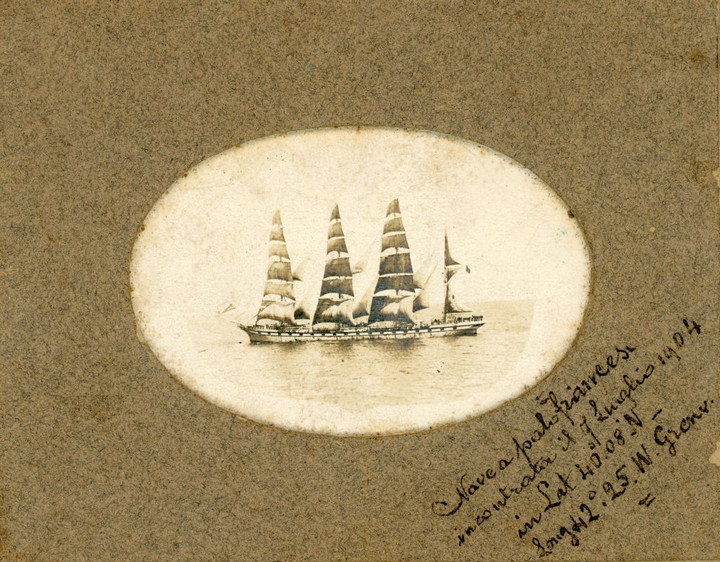 Nave a palo francese
incontrata il 7 Luglio 1904
in Lat 40°.08'. N
Long 42°.25. W. Grenv.